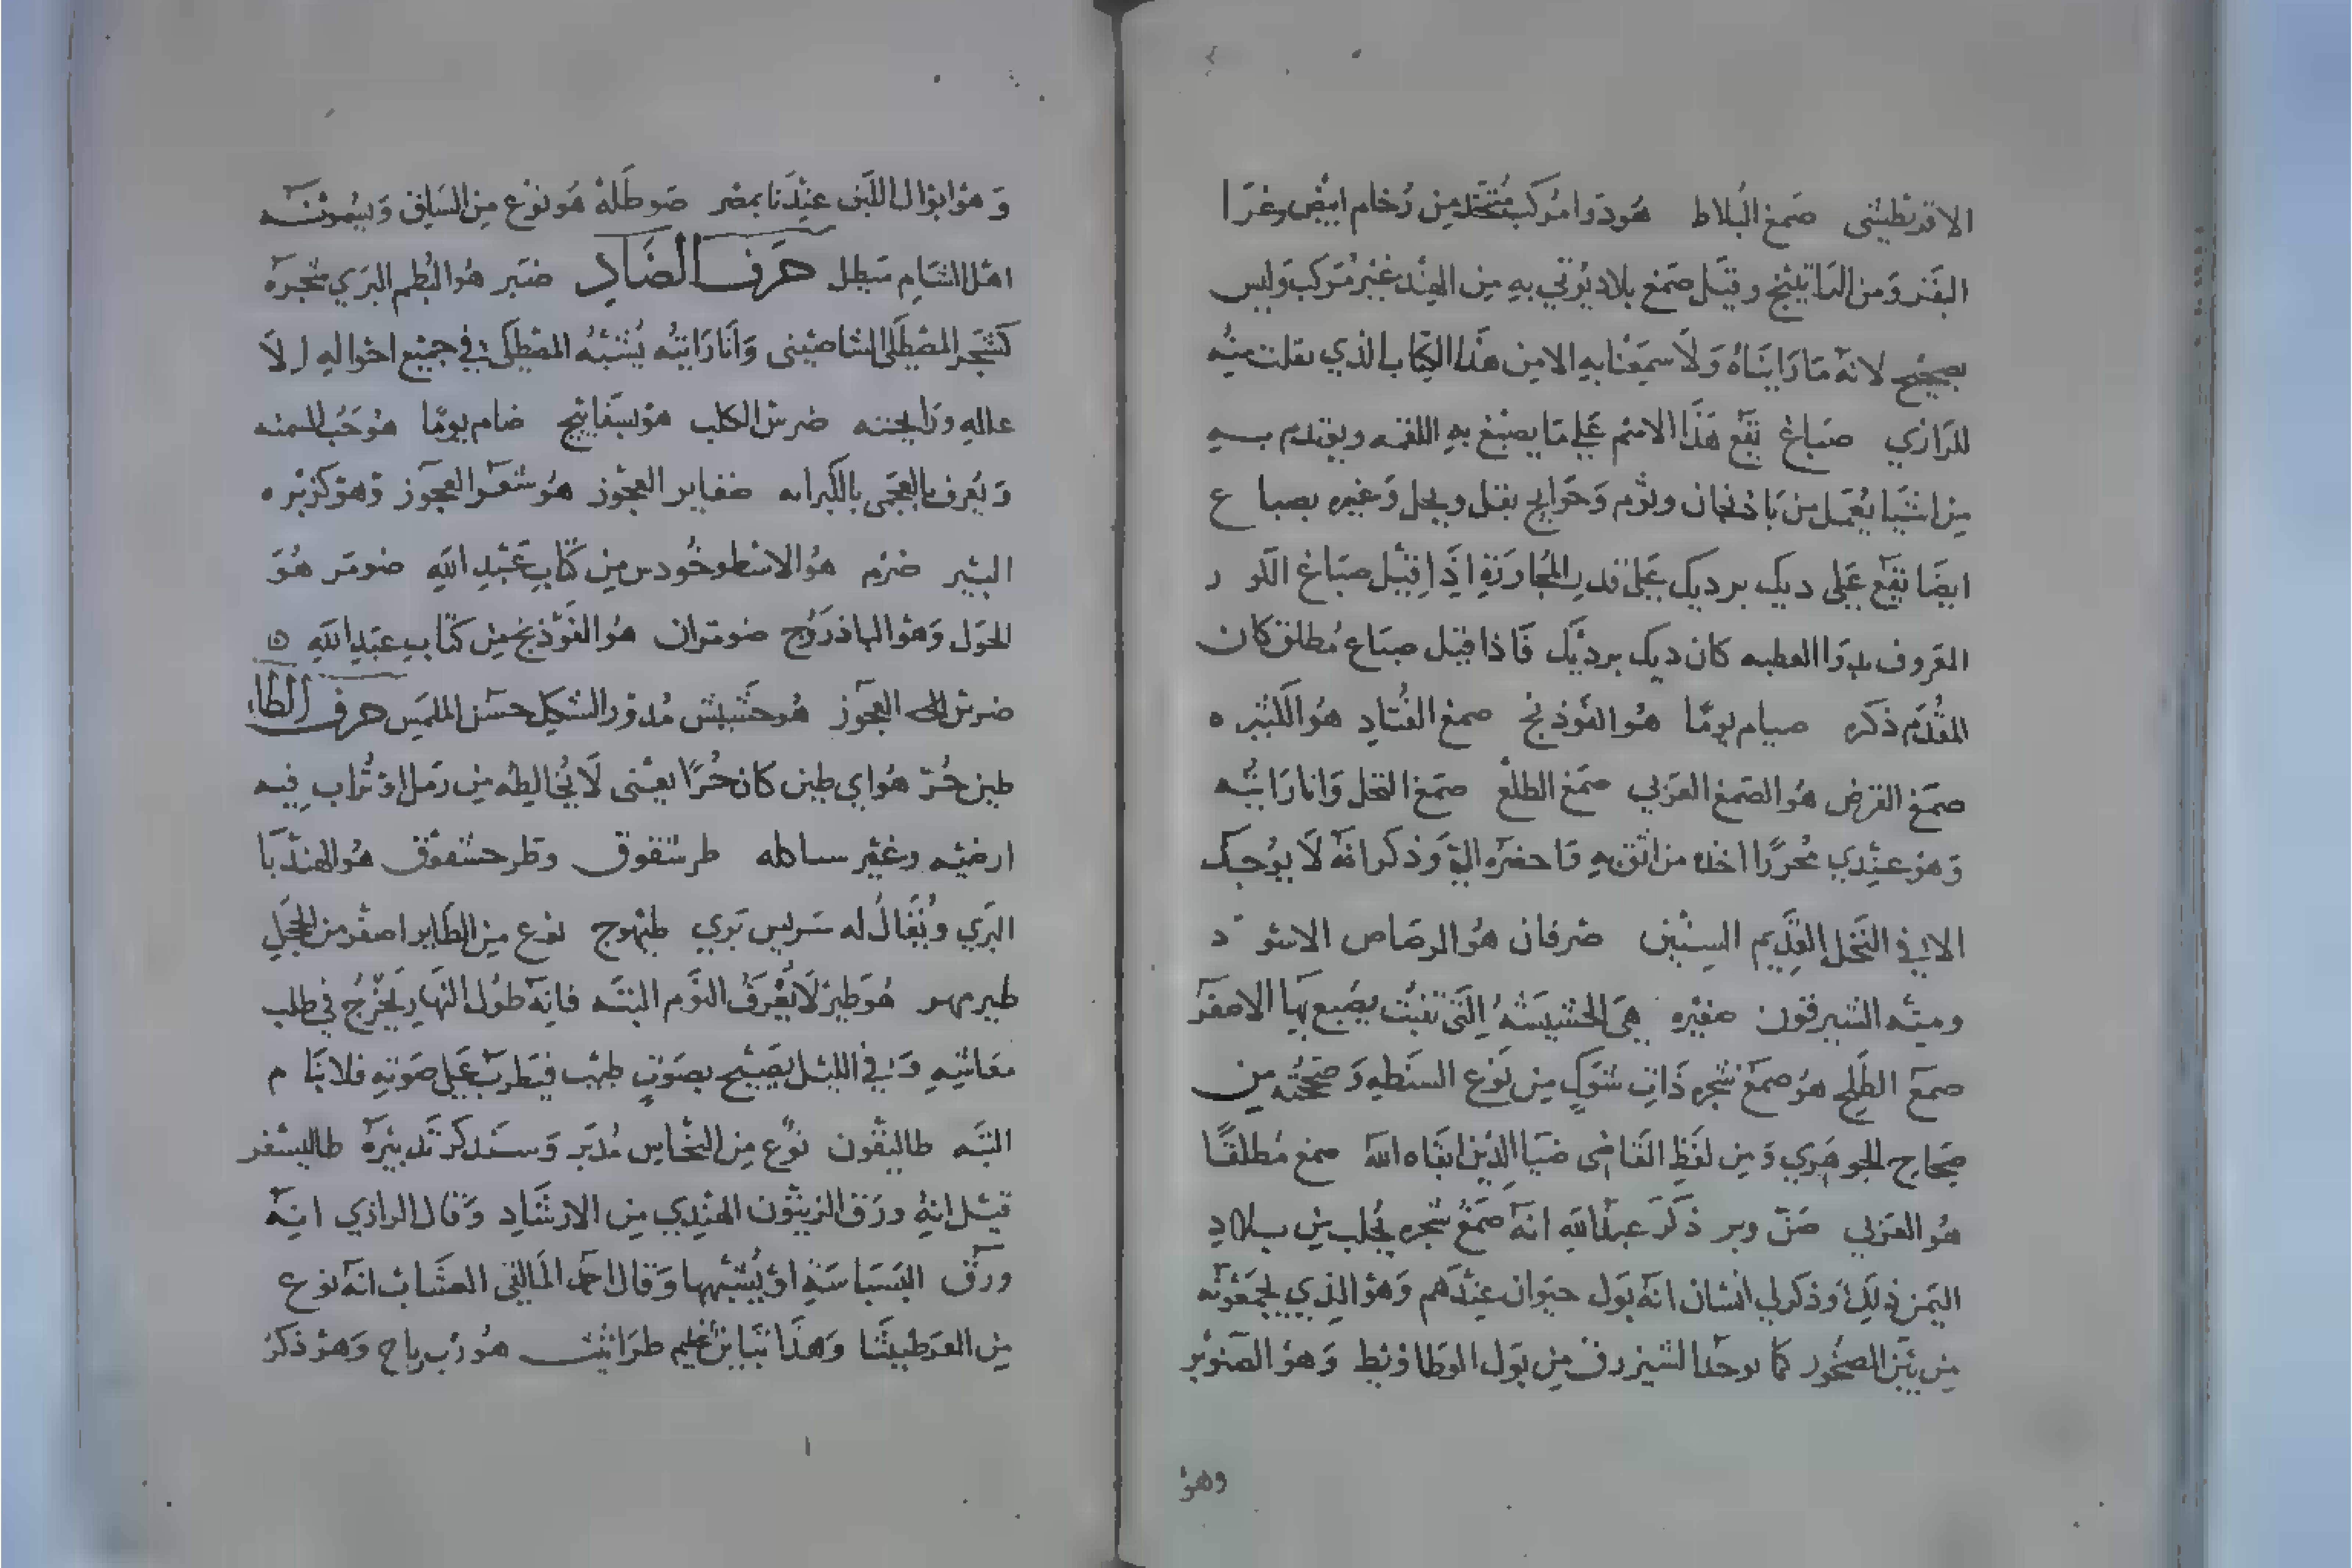 الاقريطشى صمغ البلاط هو دوا مركب متخذ من رخام ابيض وغرا
البقر ومن الراتينج وقيل صمغ بلاد يوتي به من الهند غير مركب وليس
بصحيح لانه ما رايناه ولا سمعنا به الا من هذا الكتاب الذي نقلت منه
للرازي صباغ يقع هذا الاسم على ما يصبغ به اللقمه ويقدم به
من اشيا يعمل من باذنجان وثوم وحوايج بقل وبخل وغيره بصباغ
ايضا يقع على ديك برديك على قدر المجاورة اذا قيل صباغ الكور
المعروف كان ديك برديك فاذا قيل صباغ مطلق كان
المقدم ذكره صيام يوما هو الفوذنج صمغ القتاد هو الكثيره
صمغ القرض هو الصمغ العربي صمغ الطلع صمغ النخل وانا رايته
وهو عندي محررا اخذه من اثق به فاحضره الي وذكر انه لا يوجد
الا في النخل القديم السنين صرفان هو الرصاص الاسود
ومنه الشيرقون صفيره هي الحشيشه التي تنبت يصبغ بها الاصفر
صمغ الطلح هو صمغ شجره ذات شوك من نوع السنطيه وصححته من
صحاح الجوهري ومن لفظ القاضى ضيا الدين ابقاه الله صمغ مطلقا
هو العربي صن وبر ذكر عبد الله انه صمغ شجره يجلب من بلاد
اليمن ذلك وذكر لي انسان انه بول حيوان عندهم وهو الذي يجمعونه
من بين الصخور كما يوجد الشيزرق من بول الوطاويط وهو الصنوبر
وهو
وهو ابوال اللبن عندنا بمصر صوطله هو نوع من السلق ويسمونه
اهل الشام سطل حرف الضاد ضبر هو البطم البري شجره
كشجر المصطكى الشاميينى وانا رايته يشبه المصطكى في جميع احواله الا
علله ورايحته ضرس الكلب هو بسفايج ضام يوما هو حب السمنه
ويعرف بالعجمى ضفاير العجوز هو شعر العجوز وهو كزبره
البير ضرم هو الاسطوخودس من كتاب عبد الله ضومر هو
الحول وهو الباذروج ضومران هو الفوذنج من كتاب عبد الله ه
ضرس العجوز هو حشيش مدور الشكل حسن الملمس حرف الطاء
طين حر هو اي طين كان حرا يعنى لا يخالطه من رمل او تراب فيه
ارضيه وغير طرشقوق وطرحشقوق هو الهندبا
البري ويقال له سريس بري طيهوج نوع من الطاير اصغر من الحجل
طير هو طير لا يعرف النوم البته فانه طول النهار يخرج في طلب
معاشه وفي الليل يصيح بصوت طيب فيطرب على صوته فلا ينام
البته طاليقون نوع من النحاس مدبر وسنذكر تدبيره طاليسفر
قيل انه ورق الزيتون الهندي من الارشاد وقال الرازي انه
ورق البسباسة او يشبهها وقال احمد المالقي العشاب انه نوع
من العرطنيثا وهذا تباين عظيم طراثيث هو زب رباح وهو ذكر